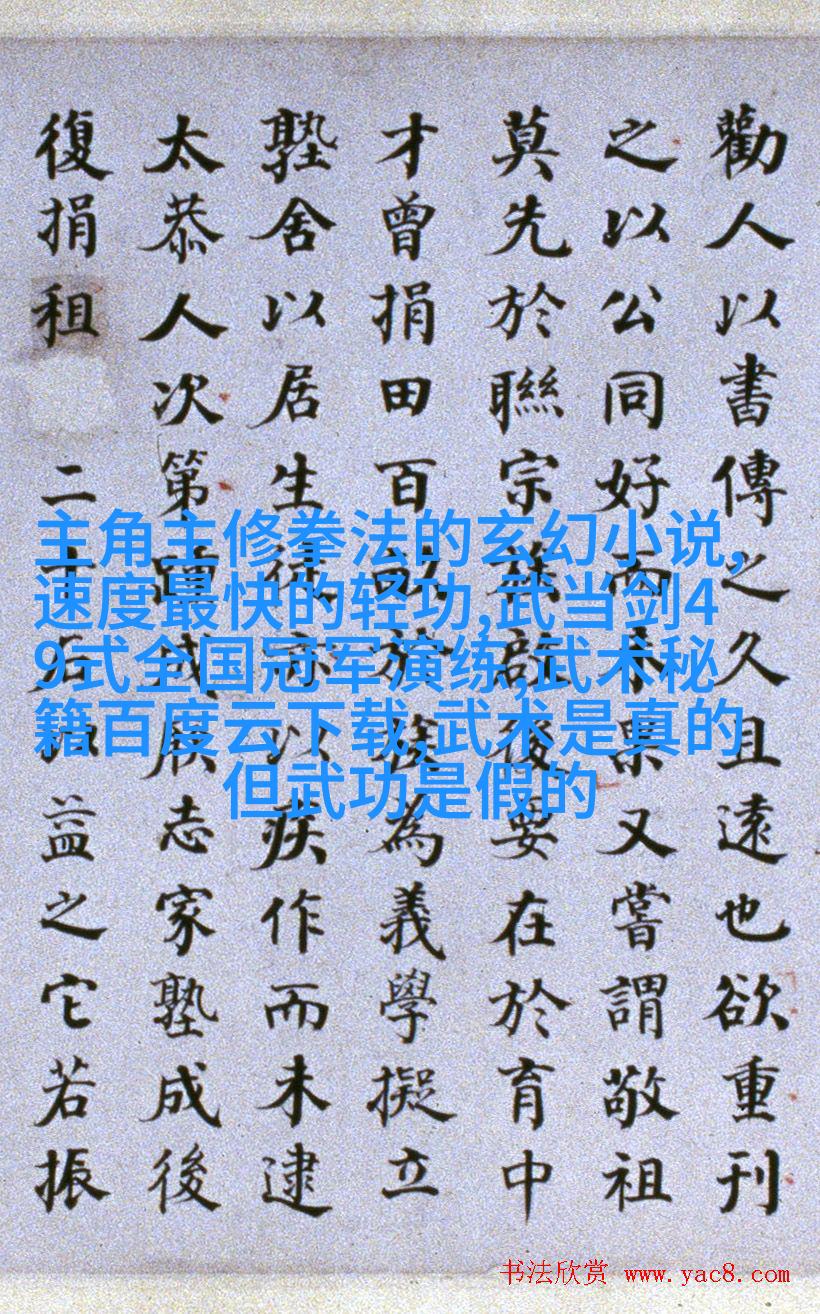 勸人以書傳之久且遠也欲重刊
之以公同好而未果又嘗謂敬祖
莫先於聯宗族啟後要在於育中
才曾捐田百畝於族為義學擬立
塾舍以居生徒亦以疾作而未逮
太恭人次第咸成厥志家塾成後
復捐租 二百石益之它若振
主角主修拳法的玄幻小说,
速度最快的轻功,武当剑4
9式全国冠军演练,武术秘
籍百度云下载,武术是真的
但武功是假的
书法欣赏 www.yac8.com